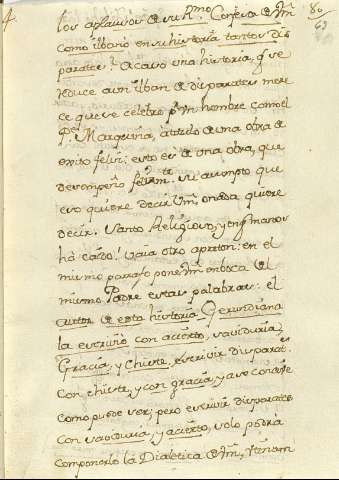 4.
80
63
los aplausos de su Rmo. Confiesa el Sm
como ilbanò en su historia tantos dis
parates! Acaso una historia, q. se
reduce a un ilban de disparates mere
ce que se celebre pr. un hombre como el
Pe. Marquina, a titulo de una obra de
exito feliz; esto es de una obra, que
desempeñò felizmte. su asumpto que
eso quiere decir, o nada quiere
decir. Santo Religioso, y en q. manos
ha caido! Vaia otro apreton: en el
mismo parrafo pone en boca del
mismo Padre estas palabras: el
autor de esta historia Gerundiana
la escriviò con acierto, saviduria,
Gracia, y chiste, escrivir disparats.
con chiste, y con gracia, ya se conoce
como puede ser; pero escrivir disparates
con saviduria, y acierto, solo podrà
componerlo la Dialectica